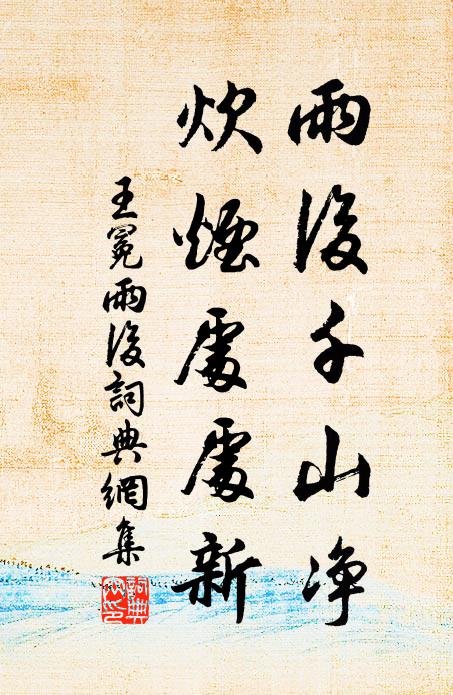 雨後千山净
炊煙處處新
王冕雨後詞典網集